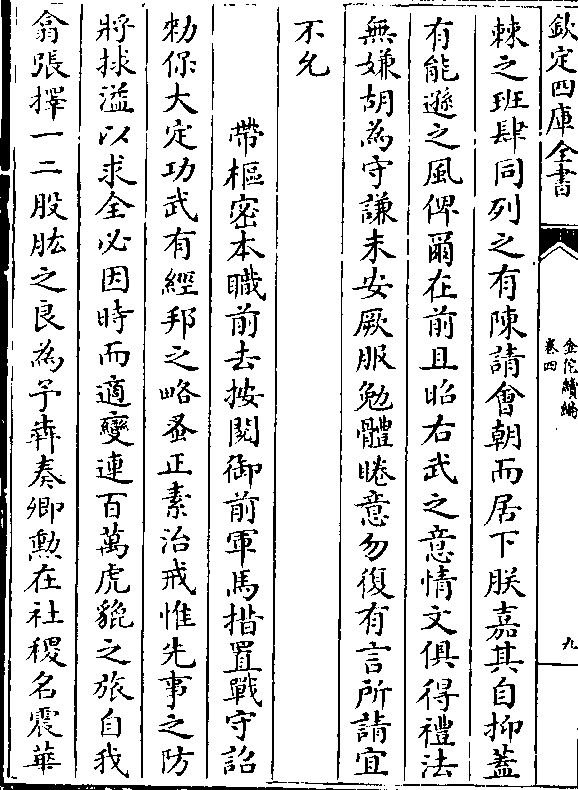 欽定四庫全書
金佗續編
卷四
九
棘之班肆同列之有陳請會朝而居下朕嘉其自抑蓋
有能遜之風俾爾在前且昭右武之意情文俱得禮法
無嫌胡為守謙未安厥服勉體眷意勿復有言所請宜
不允
帶樞密本職前去按閱御前軍馬措置戰守詔
勑保大定功武有經邦之略蚤正素治戒惟先事之防
將捄溢以求全必因時而適變連百萬虎貔之旅自我
翕張擇一二股肱之良為予犇奏卿勲在社稷名震華